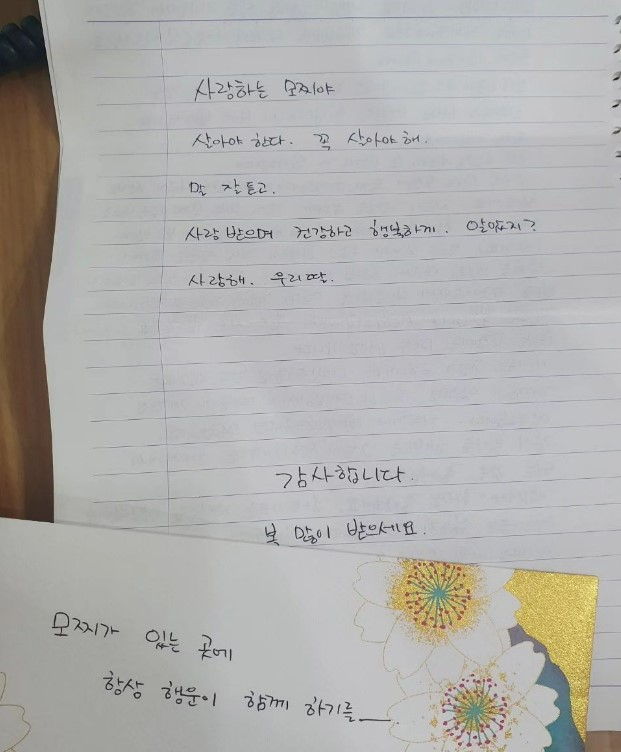 사랑하는 모찌야
살아야 한다. 꼭 살아야 해.
말 잘 듣고.
사랑 받으며 건강하고 행복하게. 알았지?
사랑해. 우리 딸.
감사합니다.
복 많이 받으세요.
모찌가 있는 곳에
항상 행운이 함께 하기를